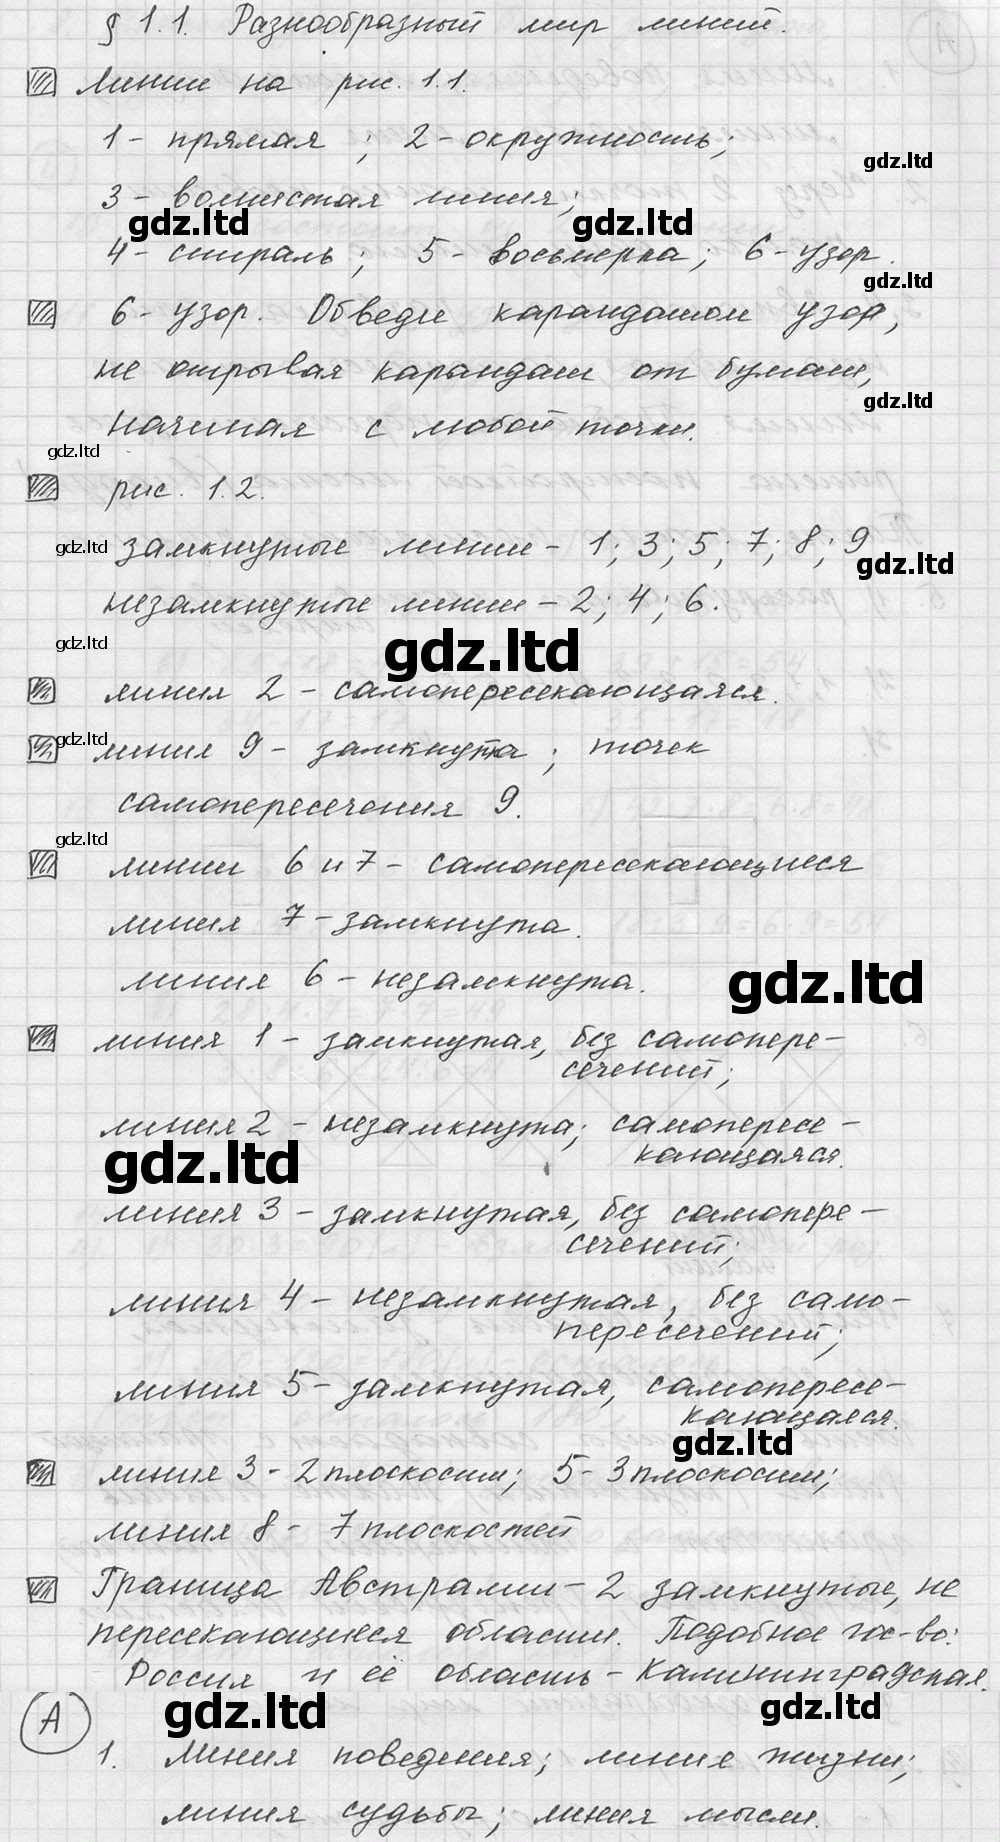 § 1.1. Разнообразный мир линий.
Линии на рис. 1.1.
1 - прямая ; 2 - окружность;
gdz.ltd
3 - волнистая линия;
gdz.ltd gdz.ltd
4 - спираль; 5 - восьмерка; 6 - узор.
gdz.ltd
6 - узор. Обведи карандашом узор,
не отрывая карандаш от бумаги,
gdz.ltd
начиная с любой точки.
gdz.ltd
рис. 1.2.
gdz.ltd замкнутые линии - 1; 3; 5; 7; 8; 9
gdz.ltd
незамкнутые линии - 2; 4; 6.
gdz.ltd gdz.ltd
линия 2 - самопересекающаяся.
gdz.ltd
линия 9 - замкнута; точек
самопересечения 9.
gdz.ltd
линии 6 и 7 - самопересекающиеся
линия 7 - замкнута.
линия 6 - незамкнута.
gdz.ltd
линия 1 - замкнутая, без самопере-
сечений;
линия 2 - незамкнута; самопересе-
кающаяся.
gdz.ltd
линия 3 - замкнутая, без самопере-
сечений;
линия 4 - незамкнутая, без само-
пересечений;
линия 5 - замкнутая, самопересе-
кающаяся.
gdz.ltd
линия 3 - 2 плоскости; 5 - 3 плоскости;
линия 8 - 7 плоскостей
Граница Австралии - 2 замкнутые, не
пересекающиеся области. Подобное гос-во:
Россия и её область - Калининградская.
А
gdz.ltd gdz.ltd
1. линия поведения; линия жизни;
линия судьбы; линия мысли.